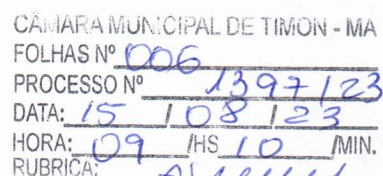 CÂMARA MUNICIPAL DE TIMON - MA
FOLHAS Nº 006
PROCESSO Nº 1397/23
DATA: 15 / 08 / 23
HORA: 09 /HS 10 /MIN.
RUBRICA: